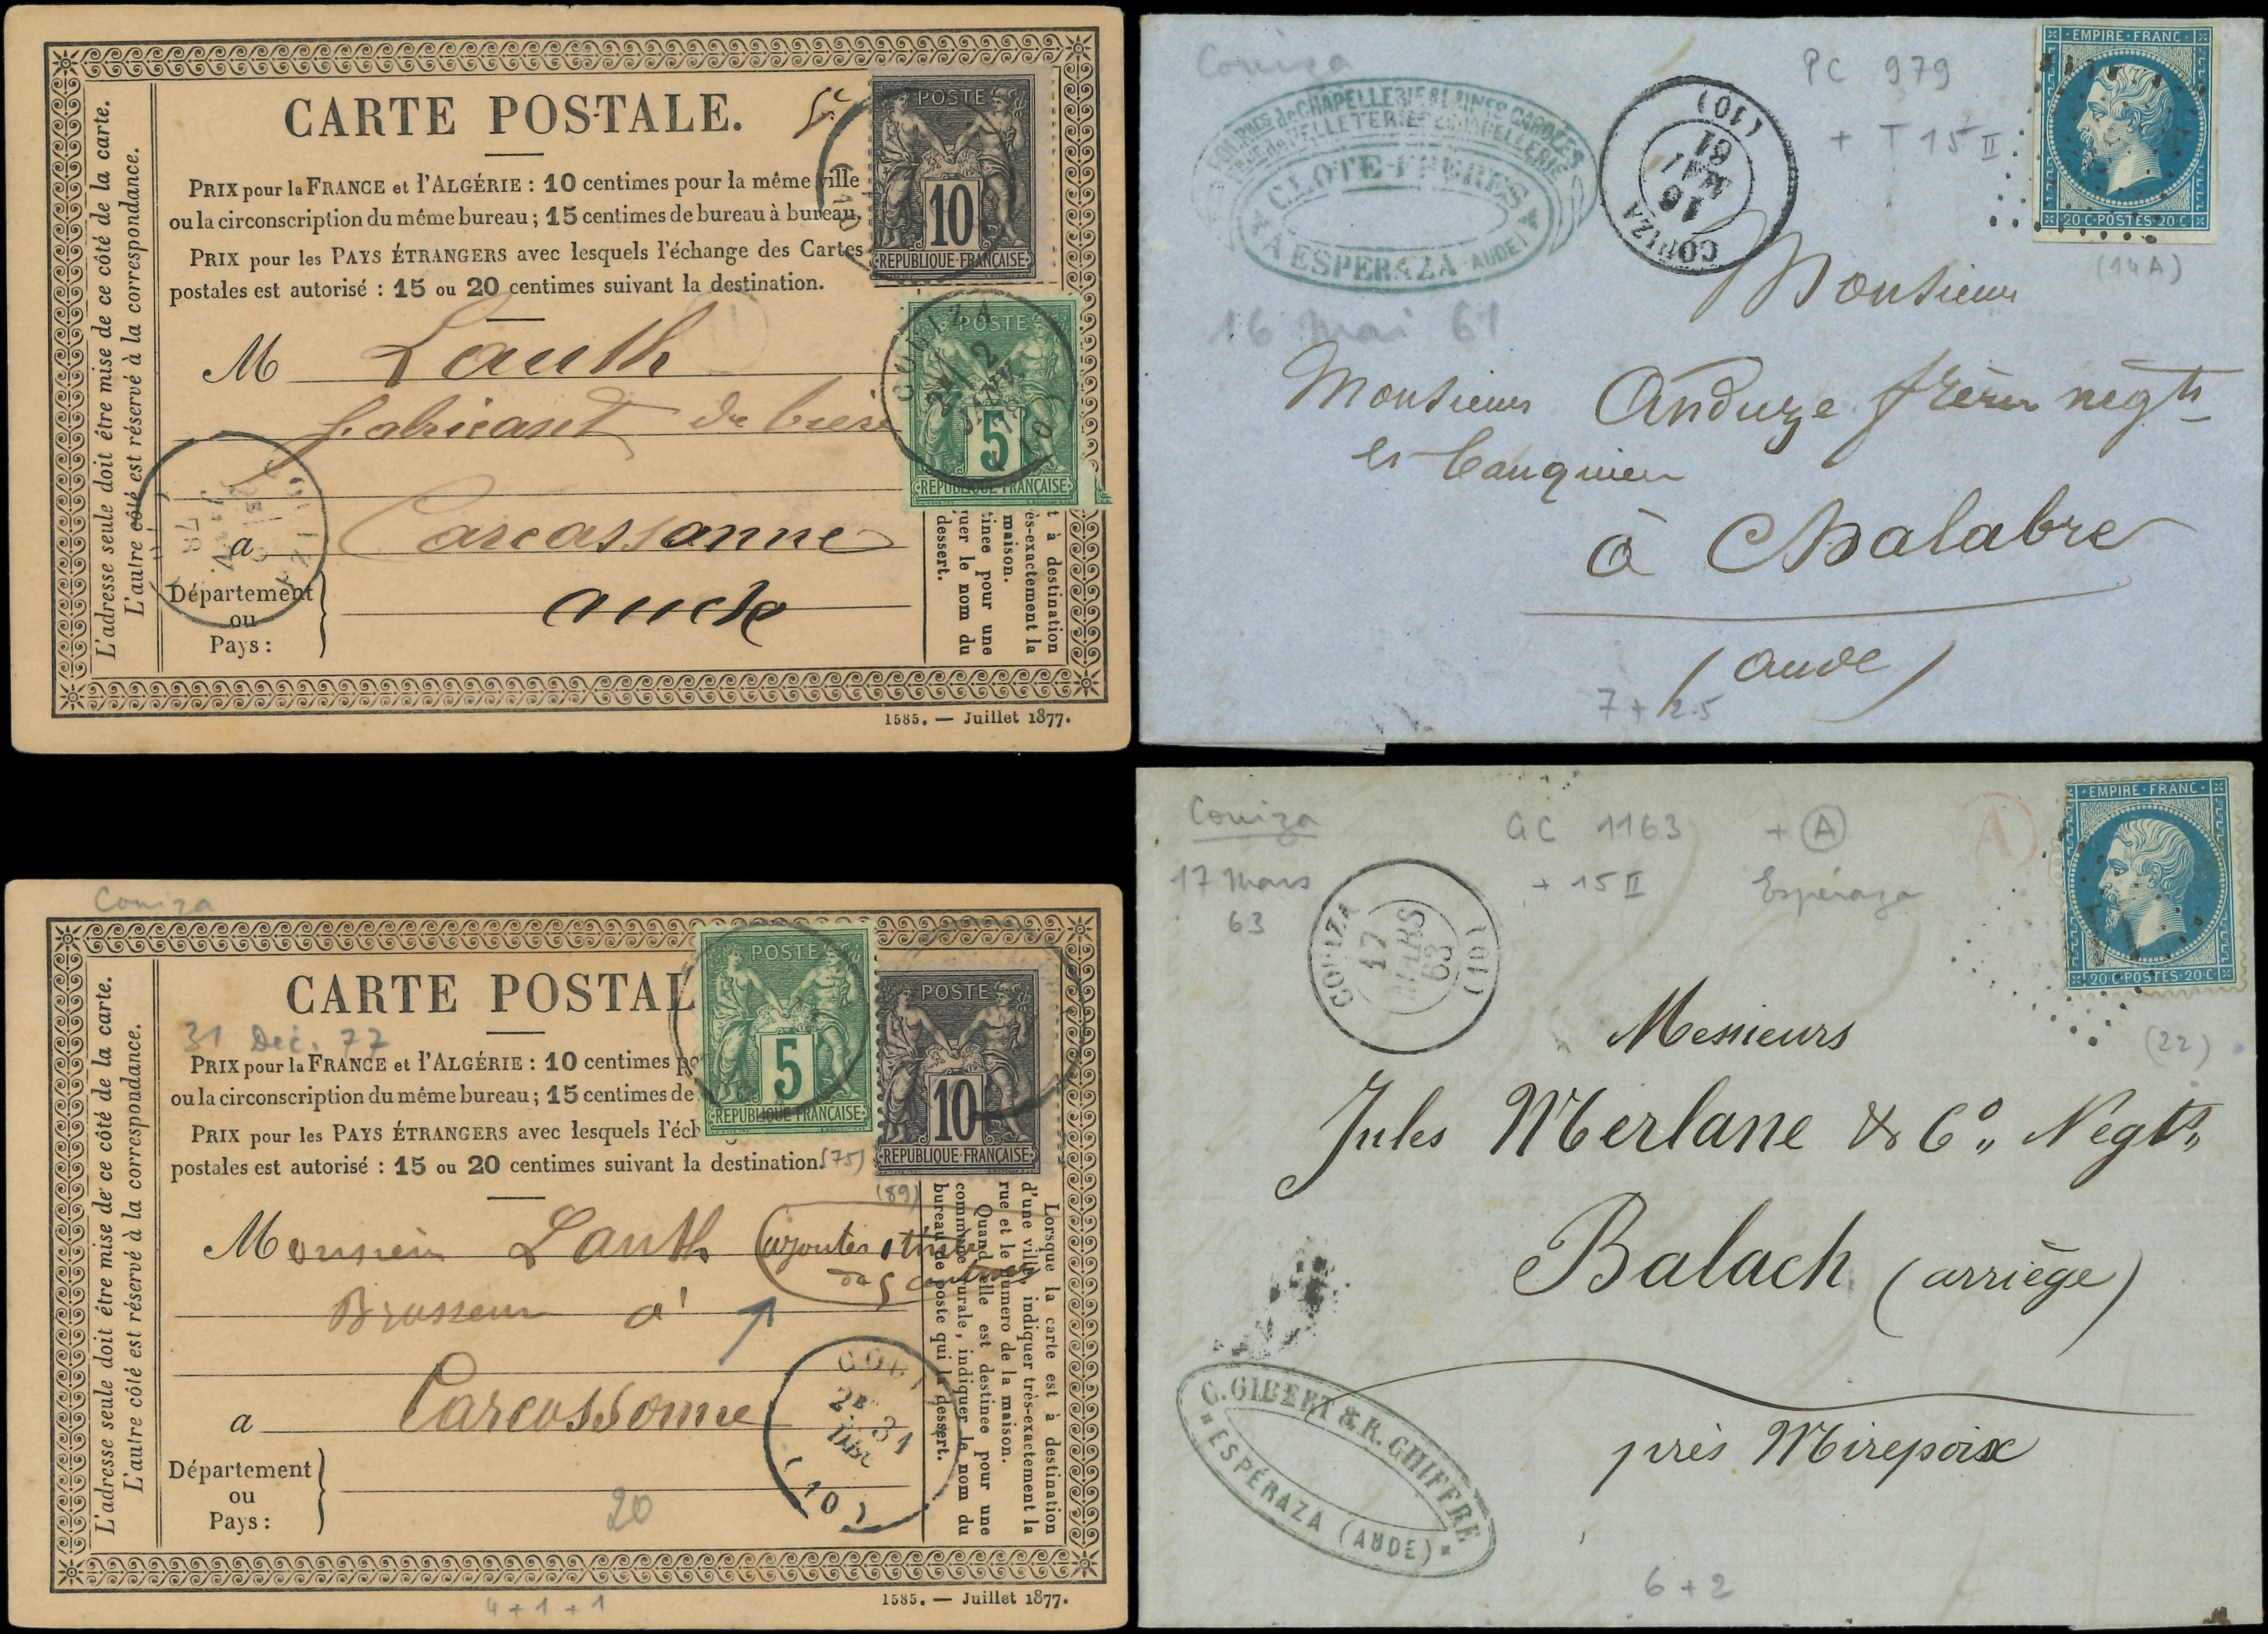 CARTE POSTALE.
PRIX pour la FRANCE et l'ALGÉRIE : 10 centimes pour la même ville
ou la circonscription du même bureau ; 15 centimes de bureau à bureau.
PRIX pour les PAYS ÉTRANGERS avec lesquels l'échange des Cartes
postales est autorisé : 15 ou 20 centimes suivant la destination.
L'adresse seule doit être mise de ce côté de la carte.
L'autre côté est réservé à la correspondance.
POSTE
10
REPUBLIQUE FRANÇAISE
POSTE
5
REPUBLIQUE FRANÇAISE
COUIZA
2
JANV.
(10)
M Lauth
fabricant de
a Carcassonne
Département
ou
Pays :
aude
t à destination
ès-exactement la
maison.
tinée pour une
quer le nom du
dessert.
1585. — Juillet 1877.
Couiza
PC 979
+ T 15 II
EMPIRE FRANC
20 C POSTES 20 C
(14A)
CLOTE FRERES
A ESPERAZA (AUDE)
COUIZA
16
MAI
61
(10)
16 mai 61
Monsieur
Monsieur Anduze frères negts
et banquier
à Chalabre
(aude)
7 + 2.5
Couiza
31 Déc. 77
CARTE POSTAL
PRIX pour la FRANCE et l'ALGÉRIE : 10 centimes po
ou la circonscription du même bureau ; 15 centimes de
PRIX pour les PAYS ÉTRANGERS avec lesquels l'éch
postales est autorisé : 15 ou 20 centimes suivant la destination.
L'adresse seule doit être mise de ce côté de la carte.
L'autre côté est réservé à la correspondance.
POSTE
5
REPUBLIQUE FRANÇAISE
(75)
POSTE
10
REPUBLIQUE FRANÇAISE
(89)
Monsieur Lauth (ajouter 1 timbre
de 5 centimes)
Brasseur a'
a Carcassonne
Département
ou
Pays :
20
COUI
2E
31
(10)
Lorsque la carte est à destination
d'une ville, indiquer très-exactement la
rue et le numéro de la maison.
Quand elle est destinée pour une
commune rurale, indiquer le nom du
bureau de poste qui la dessert.
1585. — Juillet 1877.
4 + 1 + 1
Couiza
17 Mars
63
GC 1163
+ 15 II
+ A
Espéraza
A
EMPIRE FRANC
20 C POSTES 20 C
(22)
COUIZA
17
MARS
63
(10)
Messieurs
Jules Merlane & Co,, Negts,,
Balach (arriège)
près Mirepoix
C. GIBERT & R. GHIFFRE
ESPÉRAZA (AUDE)
6 + 2